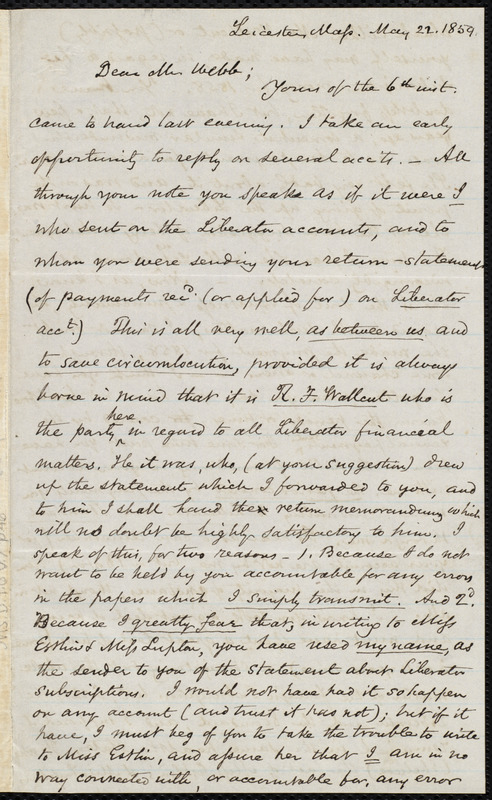 Leicester, Mass. May 22. 1859.
Dear Mr. Webb;
Yours of the 6th inst.
came to hand last evening. I take an early
opportunity to reply on several accts. — All
through your note you speak as if it were I
who sent on the Liberator accounts, and to
whom you were sending your return-statements
(of payments rec'd. (or applied for) on Liberator
acct.) This is all very well, as between us and
to save circumlocution, provided it is always
borne in mind that it is R. F. Wallcut who is
the party here in regard to all Liberator financial
matters. He it was, who, (at your suggestion) drew
up the statement which I forwarded to you, and
to him I shall hand the return memorandum which
will no doubt be highly satisfactory to him. I
speak of this, for two reasons — 1. Because I do not
want to be held by you accountable for any errors
in the papers which I simply transmit. And 2d.
Because I greatly fear that, in writing to Miss
Estlin & Miss Lupton, you have used my name, as
the sender to you of the statement about Liberator
subscriptions. I would not have had it so happen
on any account (and trust it has not); but if it
have, I must beg of you to take the trouble to write
to Miss Estlin, and assure her that I am in no
way connected with, or accountable for, any error